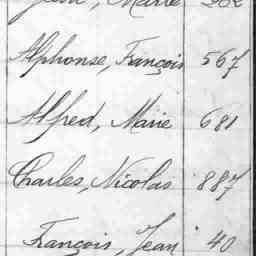 Jean, Marie 262
Alphonse, François 567
Alfred, Marie 681
Charles, Nicolas 887
François, Jean 40